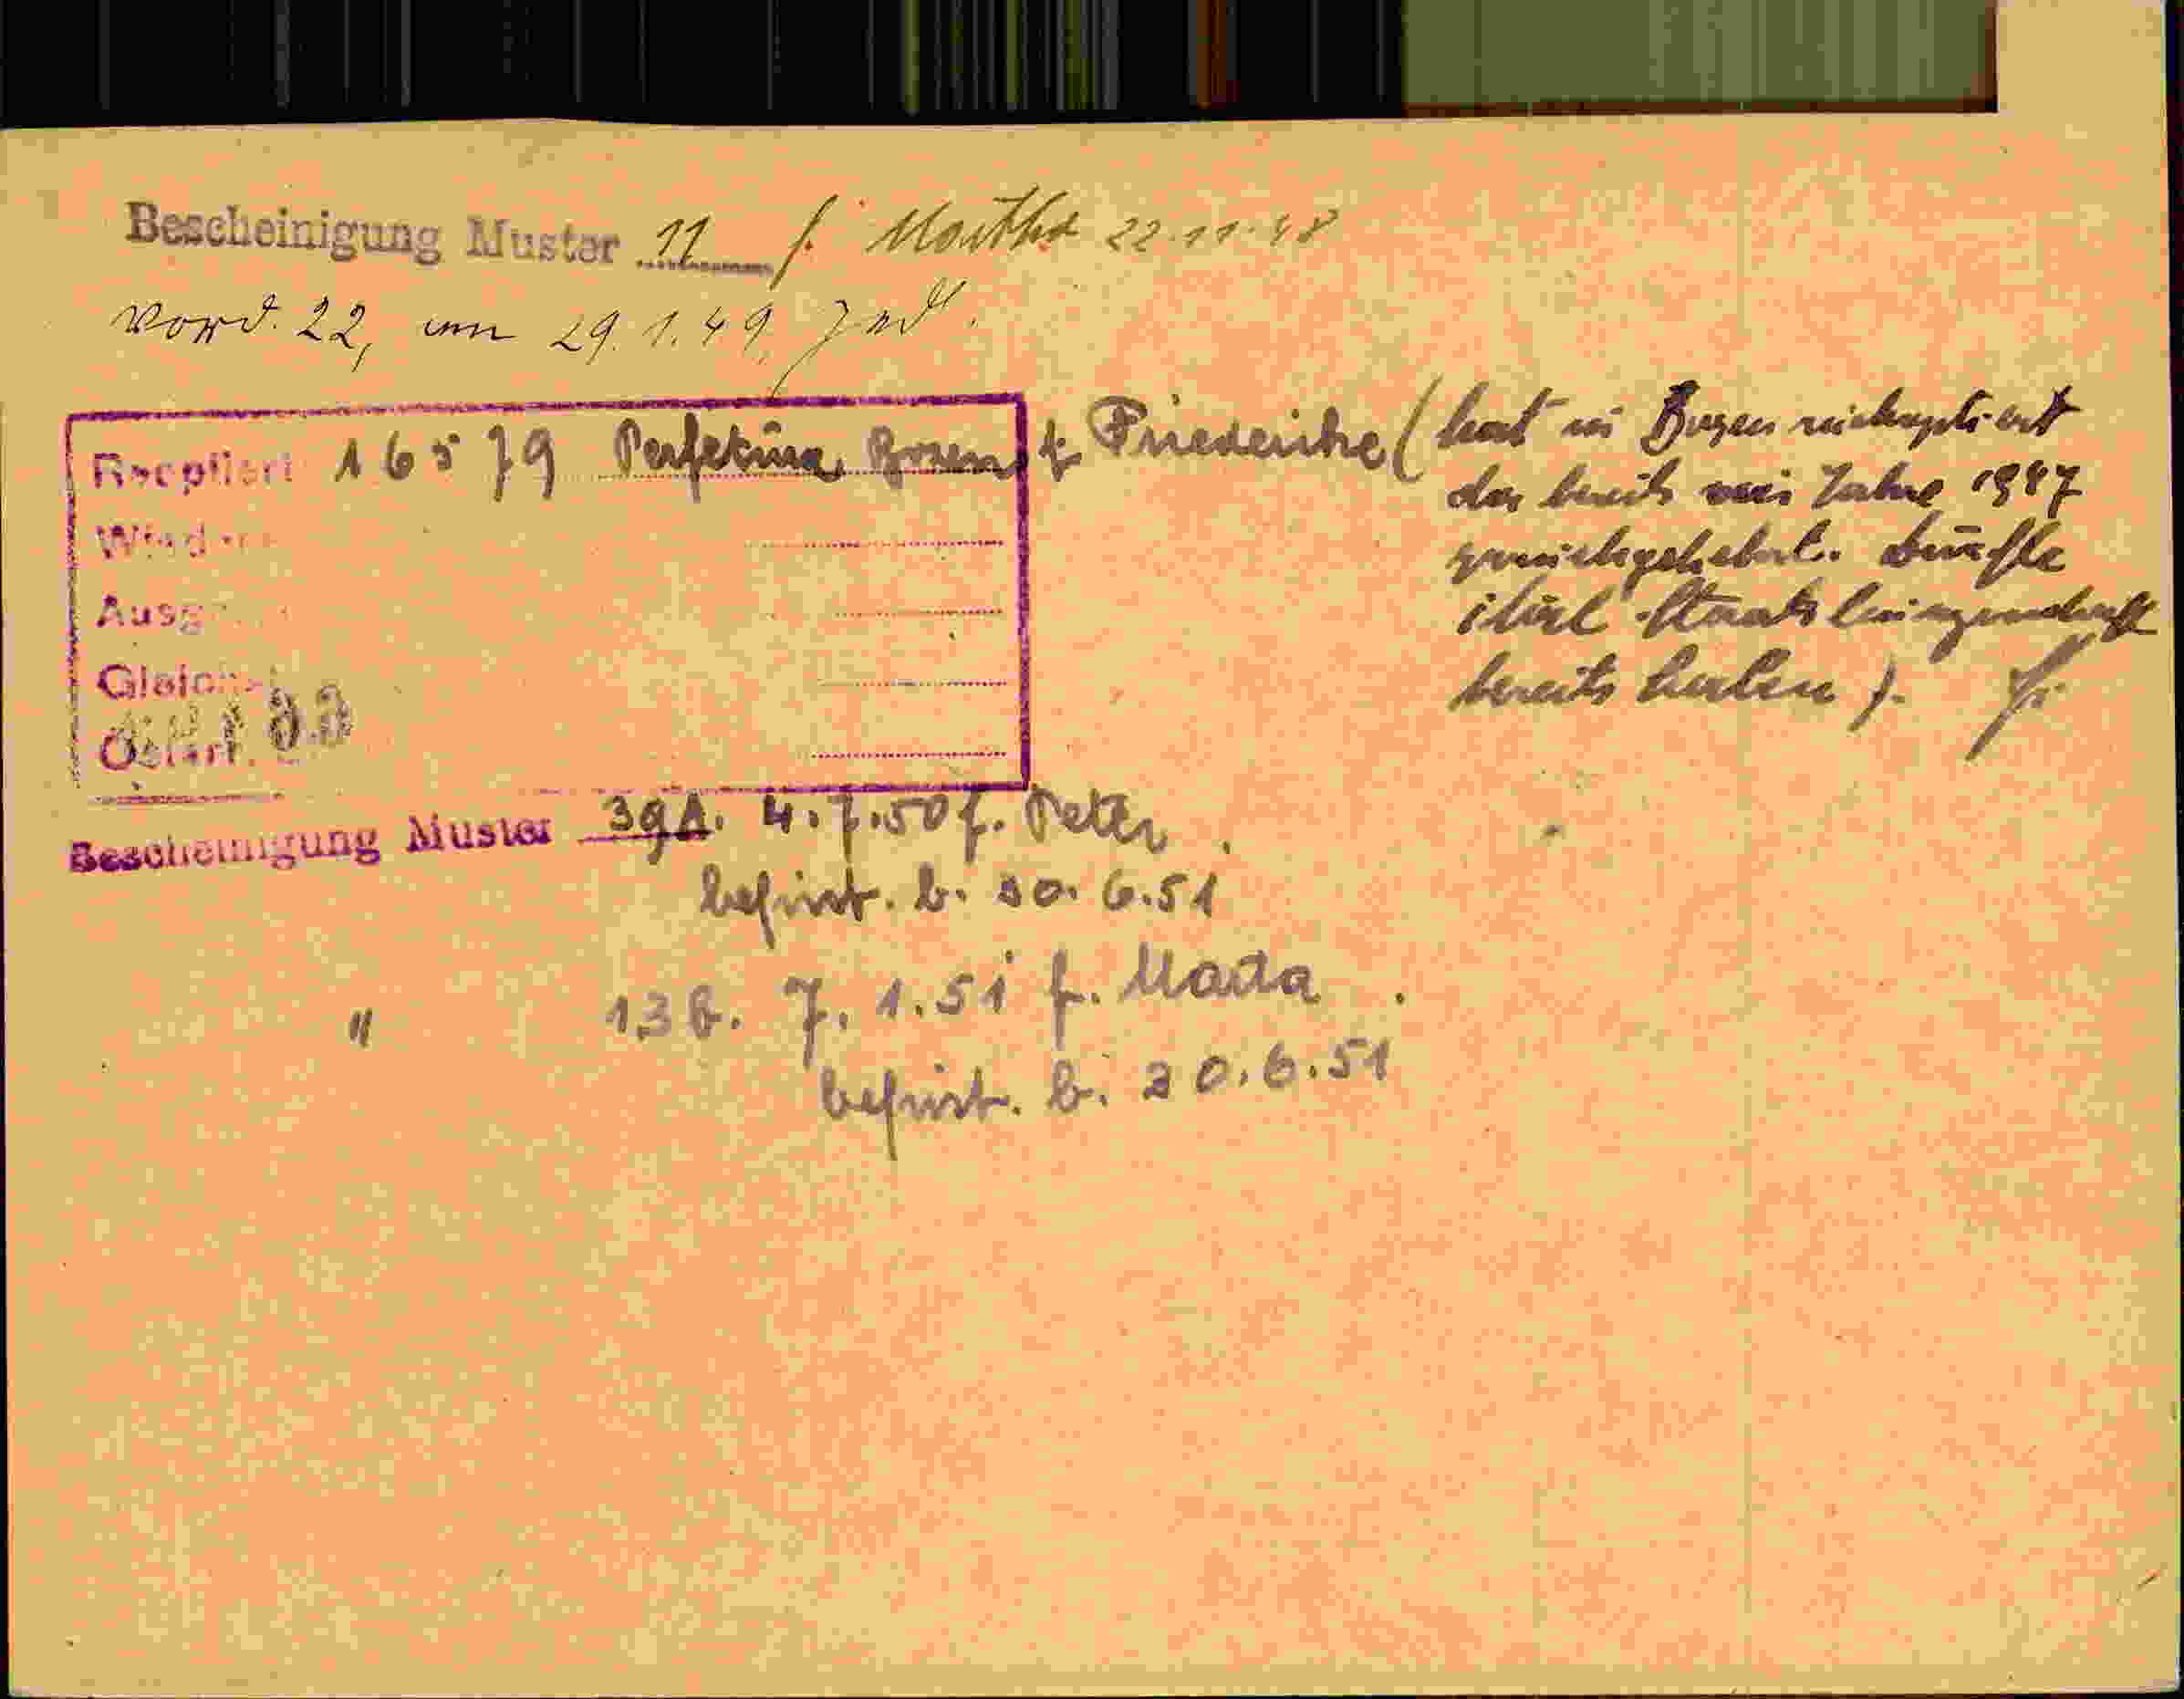 Bescheinigung Muster 11 f. Martha 22.11.48
Vord. 22, am 29.1.49.
Reoptiert 16579 Perfektur Bozen f. Friederike (hat in Bozen rückoptiert
da bereits im Jahre 1947
zurückgekehrt. Dürfte
ital. Staats
bereits haben).
Wied
Ausg
Gleich
Österr.
Bescheinigung Muster 39A. 4.7.50 f. Peter
befrist. b. 30.6.51
" 13b. 7.1.51 f. Marta
befrist. b. 30.6.51